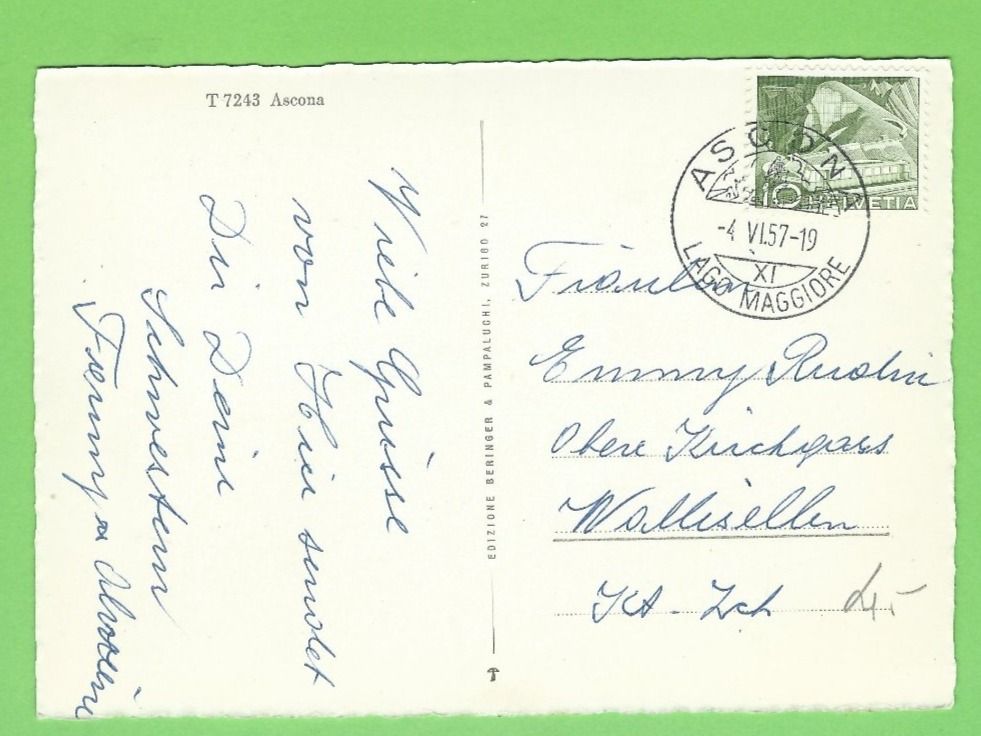 T 7243 Ascona
Viele Grüsse
von Hier sendet
Dir Deine
Schwestern
EDIZIONE BERINGER & PAMPALUCHI, ZURIGO 27
HELVETIA
10
ASCONA
-4 VI.57-19
XI
LAGO MAGGIORE
Fräulein
Emmy
Obere Kirchgass
Wallisellen
Kt. Zch
4.-